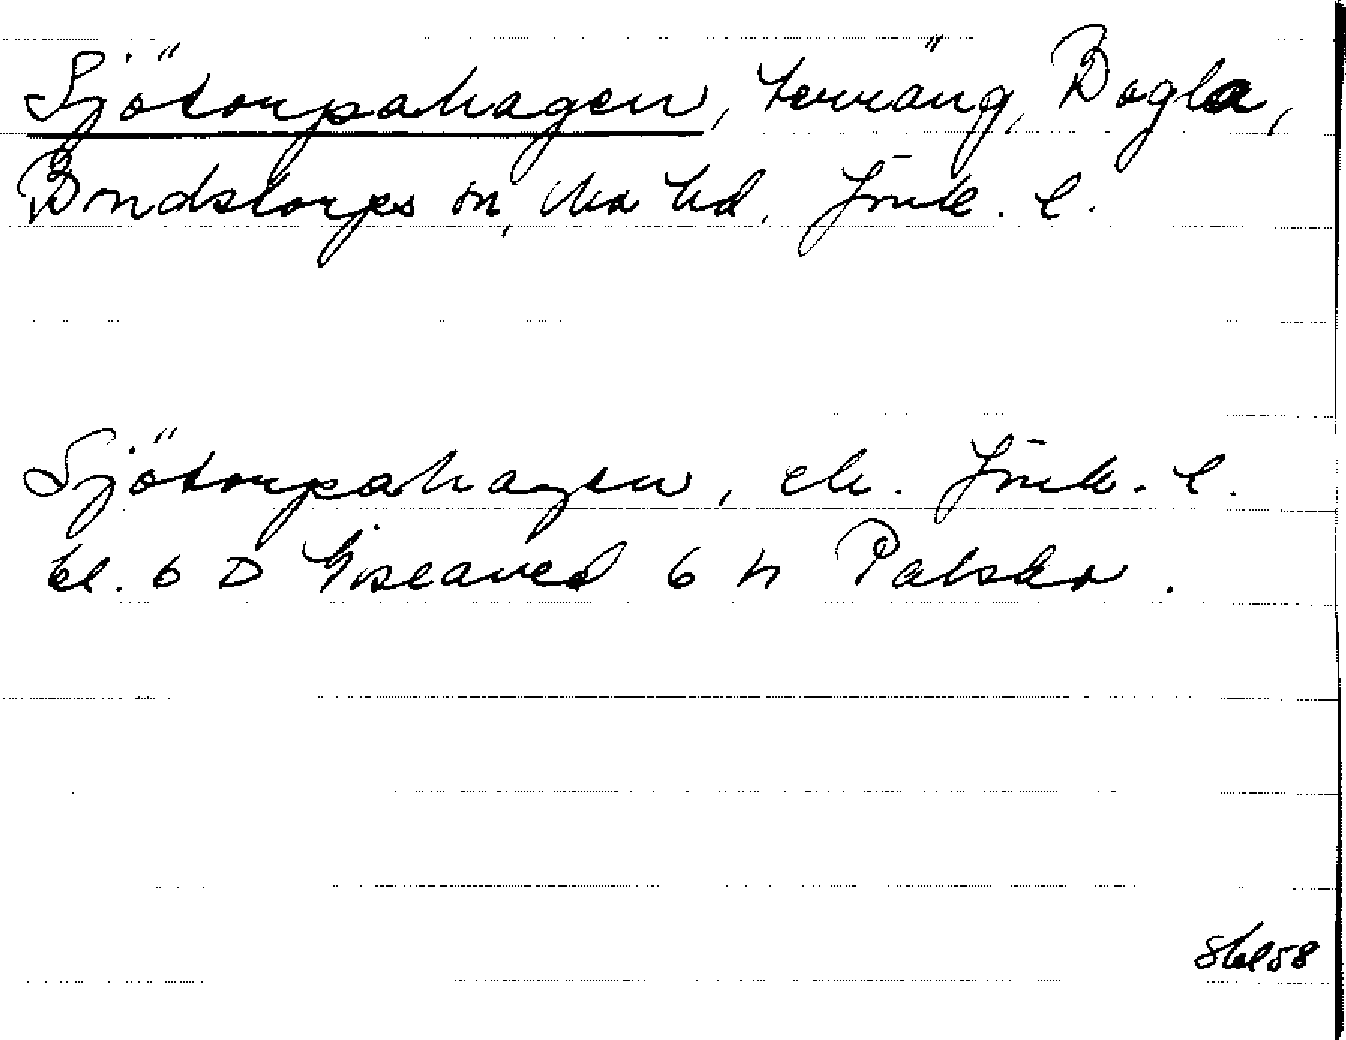 Sjötorpahagen, terräng, Bogla,
Bondstorps sn, Mo hd, Jönk. l.
Sjötorpahagen, ek. Jönk. l.
bl. 6 D Gislaved 6 h Palsbo.